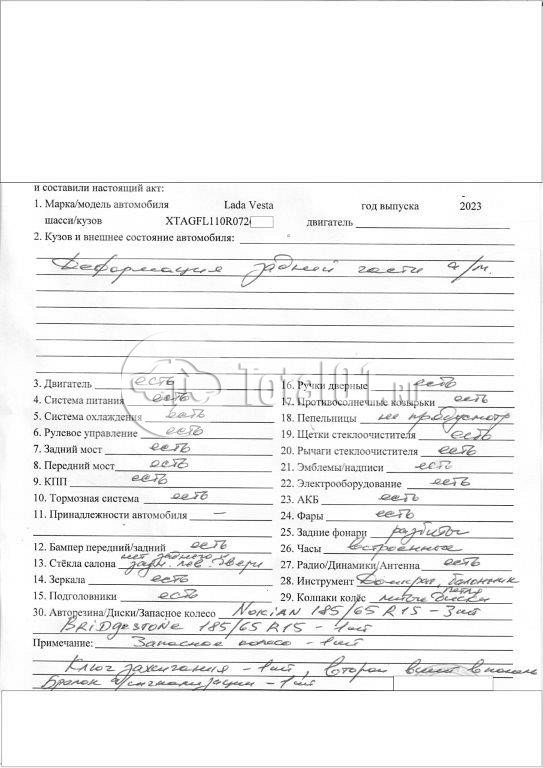 и составили настоящий акт:
1. Марка/модель автомобиля Lada Vesta год выпуска 2023
шасси/кузов XTAGFL110R072 двигатель
2. Кузов и внешнее состояние автомобиля:
Деформация задней части а/м.
3. Двигатель есть
4. Система питания есть
5. Система охлаждения есть
6. Рулевое управление есть
7. Задний мост есть
8. Передний мост есть
9. КПП есть
10. Тормозная система есть
11. Принадлежности автомобиля –
12. Бампер передний/задний есть
нет заднего
13. Стёкла салона задн. лев двери
14. Зеркала есть
15. Подголовники есть
16. Ручки дверные есть
17. Противосолнечные козырьки есть
18. Пепельницы не предусмотр
19. Щётки стеклоочистителя есть
20. Рычаги стеклоочистителя есть
21. Эмблемы/надписи есть
22. Электрооборудование есть
23. АКБ есть
24. Фары есть
25. Задние фонари разбиты
26. Часы встроенные
27. Радио/Динамики/Антенна есть
28. Инструмент Домкрат, балонник
петля
29. Колпаки колёс литые диски
30. Авторезина/Диски/Запасное колесо Nokian 185/65 R15 – 3 шт
Bridgestone 185/65 R15 – 1 шт
Примечание: Запасное колесо – 1 шт
Ключ зажигания – 1 шт, второй
Брелок сигнализации – 1 шт
Total01.ru